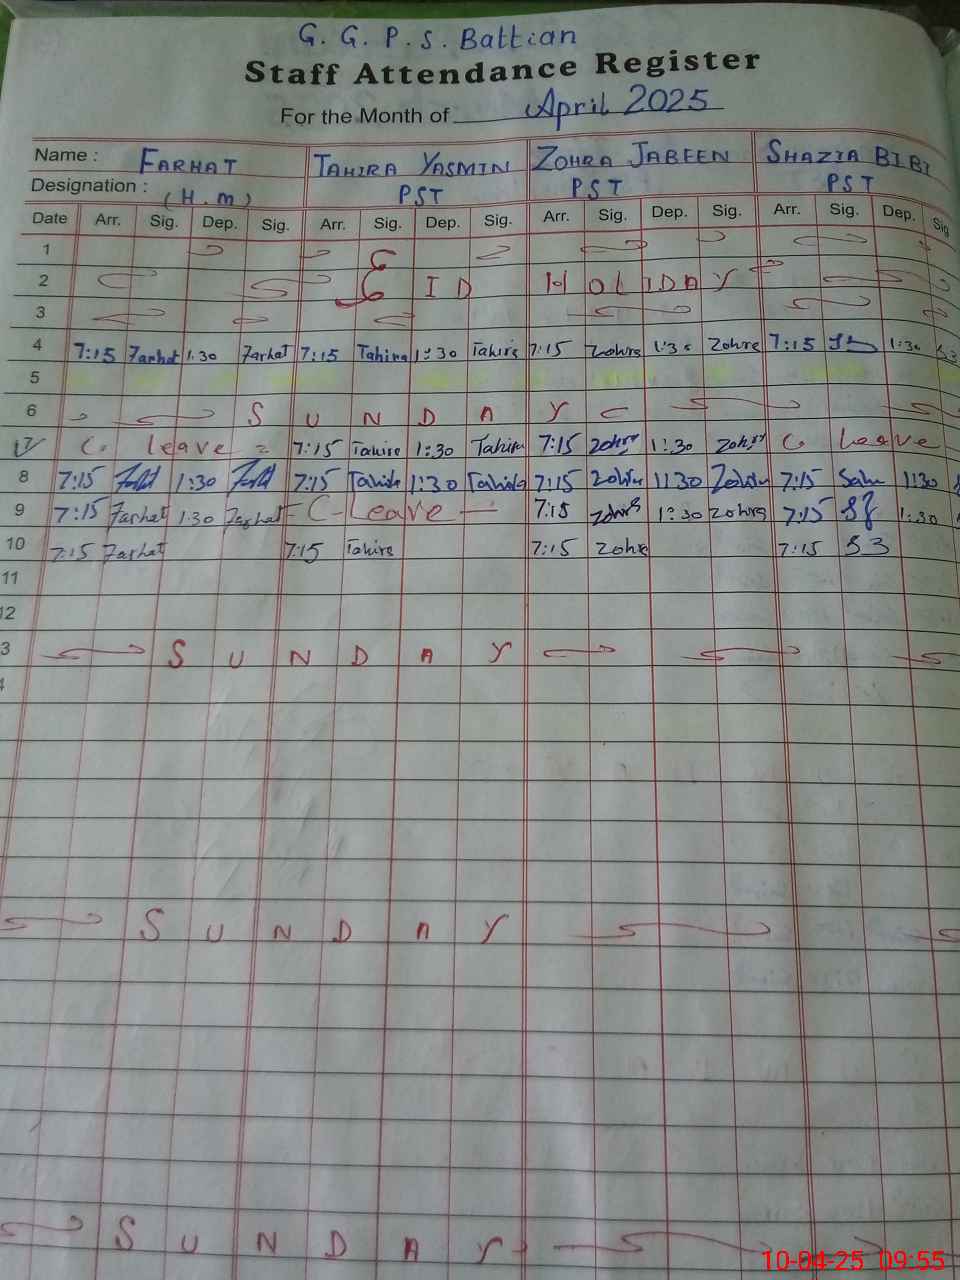 G. G. P. S. Battian
Staff Attendance Register
For the Month of April 2025
Name : FARHAT TAHIRA YASMIN ZOHRA JABEEN SHAZIA BIBI
Designation : (H.m) PST PST PST
Date Arr. Sig. Dep. Sig. Arr. Sig. Dep. Sig. Arr. Sig. Dep. Sig. Arr. Sig. Dep. Sig
1
2 EID HOLIDAY
3
4 7:15 Farhat 1:30 Farhat 7:15 Tahira 1:30 Tahira 7:15 Zohra 1:30 Zohra 7:15 1:30
5
6 SUNDAY
7 C. leave 7:15 Tahira 1:30 Tahira 7:15 Zohra 1:30 Zohra C. Leave
8 7:15 1:30 7:15 Tahira 1:30 Tahira 7:15 Zohra 1:30 Zohra 7:15 1:30
9 7:15 Farhat 1:30 Farhat C-Leave 7:15 Zohra 1:30 Zohra 7:15 1:30
10 7:15 Farhat 7:15 Tahira 7:15 Zohra 7:15
11
12
3 SUNDAY
4
SUNDAY
SUNDAY
10-04-25 09:55